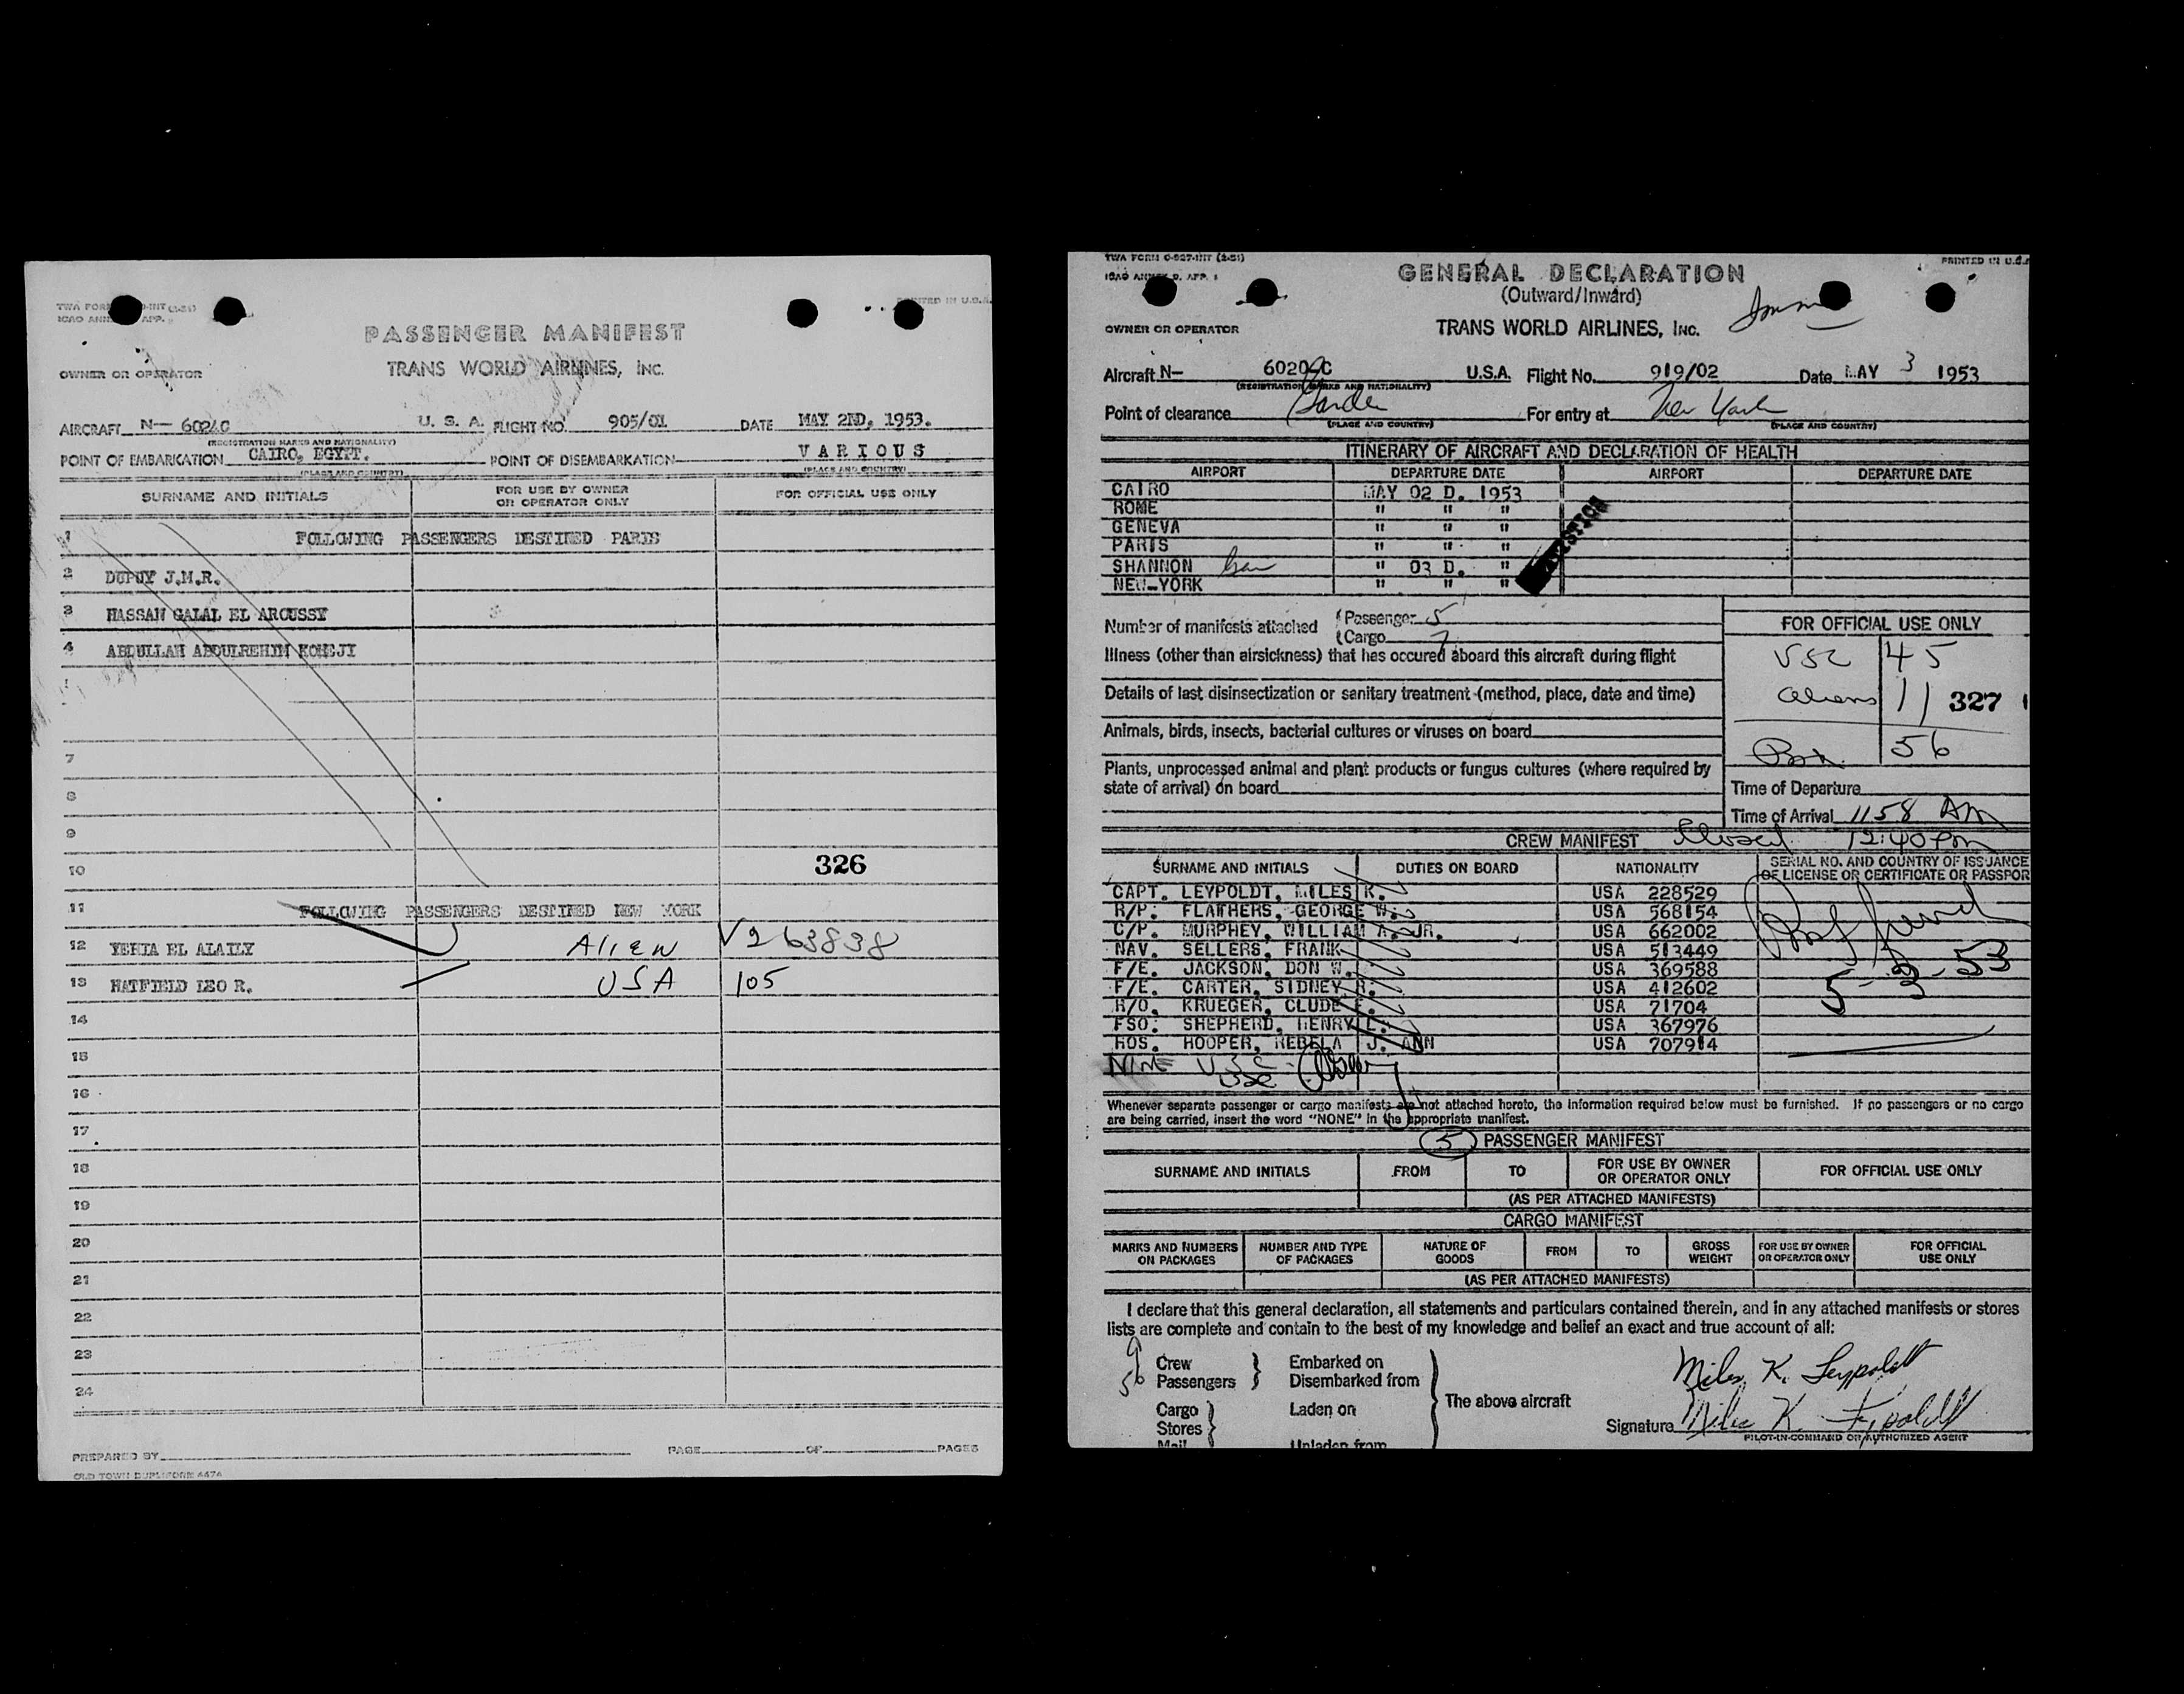 PASSENGER MANIFEST
OWNER OR OPERATOR
TRANS WORLD AIRLINES, INC.
AIRCRAFT N— 6024C U. S. A. FLIGHT NO. 905/01 DATE MAY 2ND, 1953.
(REGISTRATION MARKS AND NATIONALITY)
POINT OF EMBARKATION CAIRO, EGYPT. POINT OF DISEMBARKATION VARIOUS
(PLACE AND COUNTRY) (PLACE AND COUNTRY)
SURNAME AND INITIALS FOR USE BY OWNER OR OPERATOR ONLY FOR OFFICIAL USE ONLY
1 FOLLOWING PASSENGERS DESTINED PARIS
2 DUPUY J.M.R.
3 HASSAN GALAL EL AROUSSY
4 ABDULLAH ABDULREHIM KOHEJI
7
8
9
10 326
11 FOLLOWING PASSENGERS DESTINED NEW YORK
12 YEHIA EL ALAILY Alien V263838
13 HATFIELD LEO R. USA 105
14
15
16
17
18
19
20
21
22
23
24
PREPARED BY PAGE OF PAGES
OLD TOWN DUPLIFORM 6474
TWA FORM C-927-INT (2-51) PRINTED IN U.S.A
GENERAL DECLARATION
(Outward/Inward)
OWNER OR OPERATOR TRANS WORLD AIRLINES, INC.
Aircraft N— 6020C U.S.A. Flight No. 919/02 Date MAY 3 1953
(REGISTRATION MARKS AND NATIONALITY)
Point of clearance For entry at New York
(PLACE AND COUNTRY) (PLACE AND COUNTRY)
ITINERARY OF AIRCRAFT AND DECLARATION OF HEALTH
AIRPORT DEPARTURE DATE AIRPORT DEPARTURE DATE
CAIRO MAY 02 D. 1953
ROME " " "
GENEVA " " "
PARIS " " "
SHANNON " 03 D. "
NEW-YORK " " "
Number of manifests attached (Passenger 5
(Cargo 7
Illness (other than airsickness) that has occured aboard this aircraft during flight
Details of last disinsectization or sanitary treatment (method, place, date and time)
Animals, birds, insects, bacterial cultures or viruses on board
Plants, unprocessed animal and plant products or fungus cultures (where required by
state of arrival) on board
FOR OFFICIAL USE ONLY
USC 45
aliens 11 327
56
Time of Departure
Time of Arrival 1158 AM
CREW MANIFEST Closed 12:40 Pm
SURNAME AND INITIALS DUTIES ON BOARD NATIONALITY SERIAL NO. AND COUNTRY OF ISSUANCE
OF LICENSE OR CERTIFICATE OR PASSPOR
CAPT. LEYPOLDT, MILES K. USA 228529
R/P: FLATHERS, GEORGE W. USA 568154
C/P. MURPHEY, WILLIAM A. JR. USA 662002
NAV. SELLERS, FRANK USA 513449
F/E. JACKSON, DON W. USA 369588
F/E. CARTER, SIDNEY R. USA 412602
R/O. KRUEGER, CLUDE F. USA 71704
FSO: SHEPHERD, HENRY L. USA 367976
HOS. HOOPER, REBELA J. ANN USA 707914
5-3-53
NINE USC
USC
Whenever separate passenger or cargo manifests are not attached hereto, the information required below must be furnished. If no passengers or no cargo
are being carried, insert the word "NONE" in the appropriate manifest.
5 PASSENGER MANIFEST
SURNAME AND INITIALS FROM TO FOR USE BY OWNER OR OPERATOR ONLY FOR OFFICIAL USE ONLY
(AS PER ATTACHED MANIFESTS)
CARGO MANIFEST
MARKS AND NUMBERS ON PACKAGES NUMBER AND TYPE OF PACKAGES NATURE OF GOODS FROM TO GROSS WEIGHT FOR USE BY OWNER OR OPERATOR ONLY FOR OFFICIAL USE ONLY
(AS PER ATTACHED MANIFESTS)
I declare that this general declaration, all statements and particulars contained therein, and in any attached manifests or stores
lists are complete and contain to the best of my knowledge and belief an exact and true account of all:
9 Crew Embarked on
56 Passengers Disembarked from
The above aircraft
Cargo Laden on
Stores
Mail Unladen from
Miles K. Leypoldt
Signature Miles K. Leypoldt
PILOT-IN-COMMAND OR AUTHORIZED AGENT